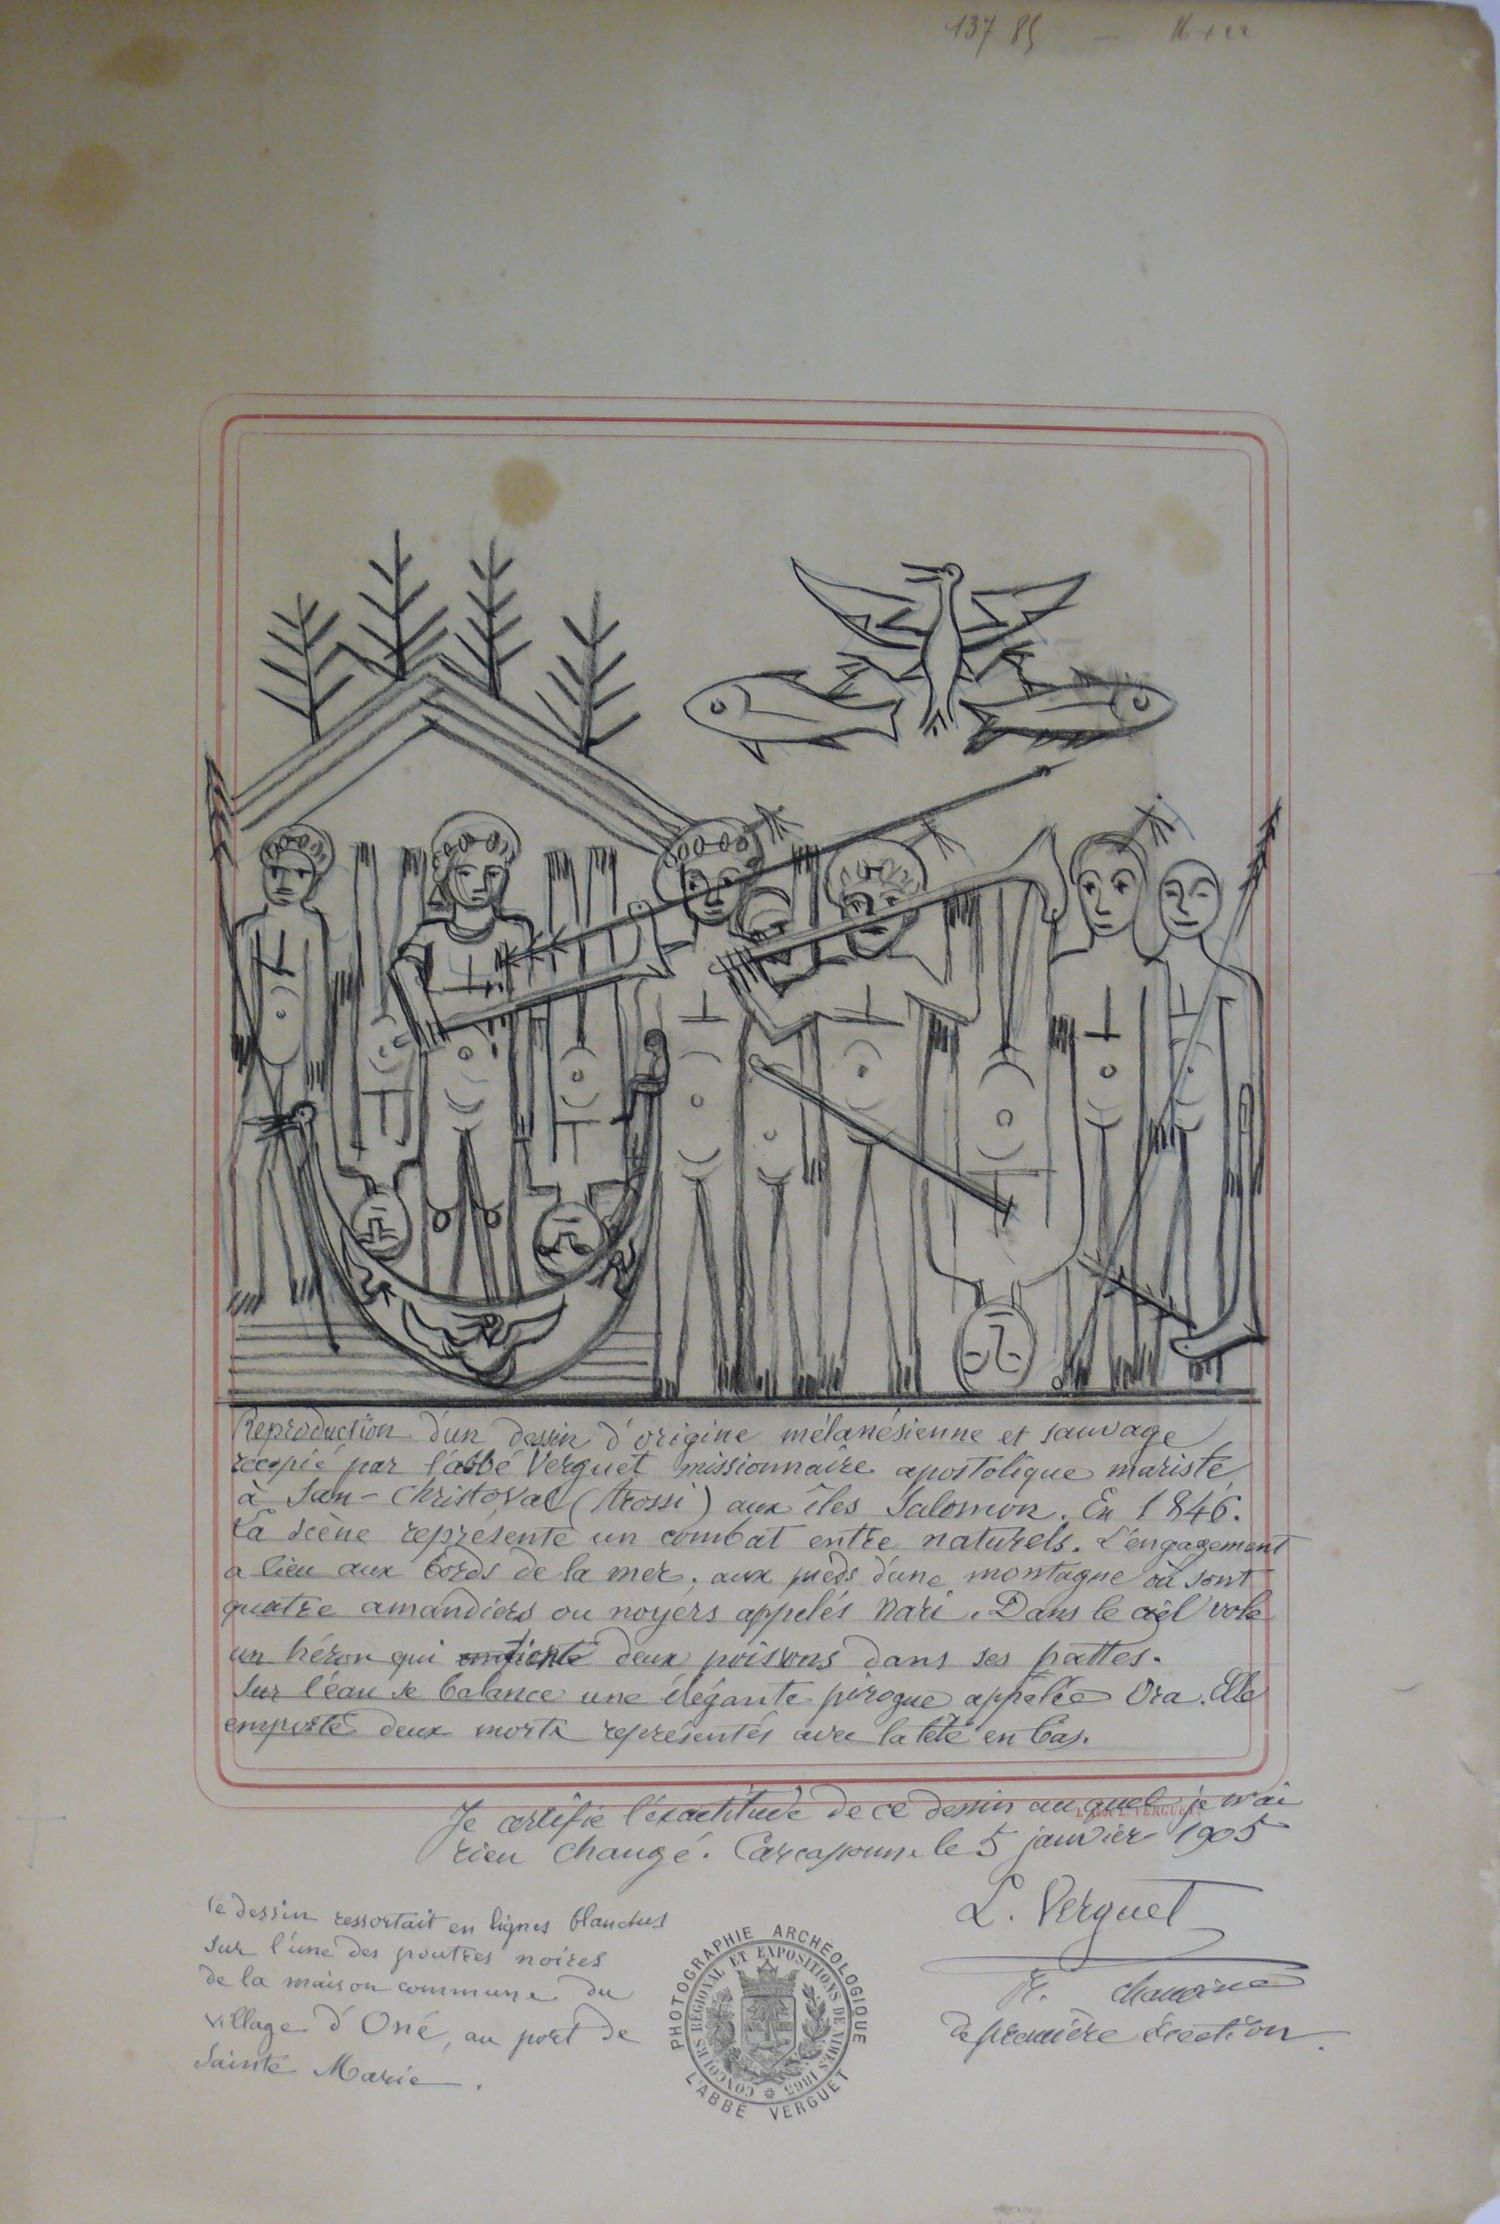 137 85 –
Reproduction d'un dessin d'origine mélanésienne et sauvage
recopié par l'abbé Verguet missionnaire apostolique mariste
à San-Christoval (Arossi) aux îles Salomon. En 1846.
La scène représente un combat entre naturels. L'engagement
a lieu aux bords de la mer, aux pieds d'une montagne où sont
quatre amandiers ou noyers appelés Nari. Dans le ciel vole
un héron qui tient deux poissons dans ses pattes.
Sur l'eau se balance une élégante pirogue appelée Ora. Elle
emporte deux morts représentés avec la tête en bas.
L'ABBÉ VERGUET
Je certifie l'exactitude de ce dessin auquel je n'ai
rien changé. Carcassonne le 5 janvier 1905
L. Verguet
chanoine
de première érection
Ce dessin ressortait en lignes blanches
sur l'une des poutres noires
de la maison commune du
village d'Oné, au port de
Sainte Marie.
PHOTOGRAPHIE ARCHEOLOGIQUE
CONCOURS RÉGIONAL ET EXPOSITIONS DE NIMES 1863
L'ABBÉ VERGUET